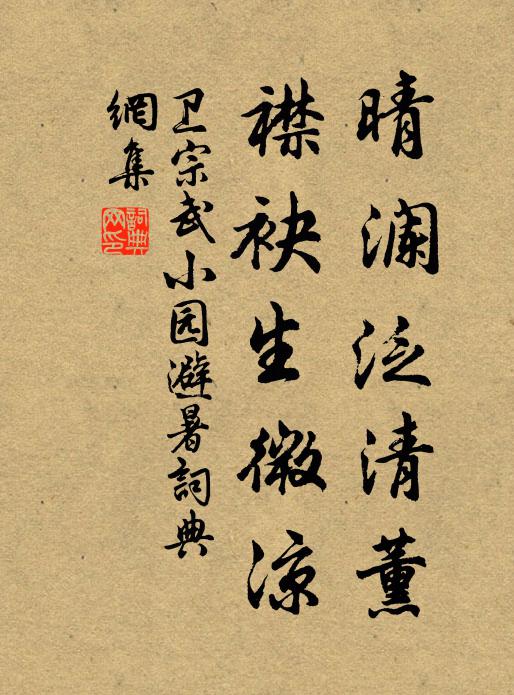 晴澜泛清薰
襟袂生微凉
卫宗武小园避暑詞典
網集
詞典网印